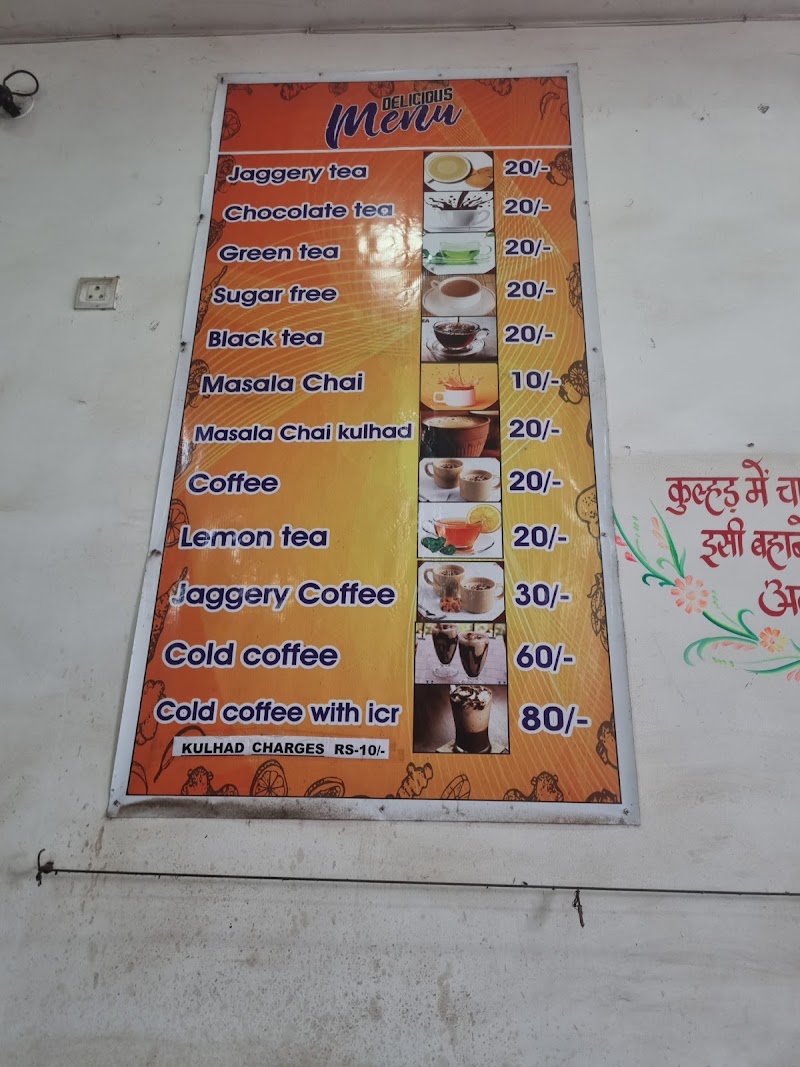 DELICIOUS
Menu
Jaggery tea 20/-
Chocolate tea 20/-
Green tea 20/-
Sugar free 20/-
Black tea 20/-
Masala Chai 10/-
Masala Chai kulhad 20/-
Coffee 20/-
Lemon tea 20/-
Jaggery Coffee 30/-
Cold coffee 60/-
Cold coffee with icr 80/-
KULHAD CHARGES RS-10/-
कुल्हड़ में
इसी